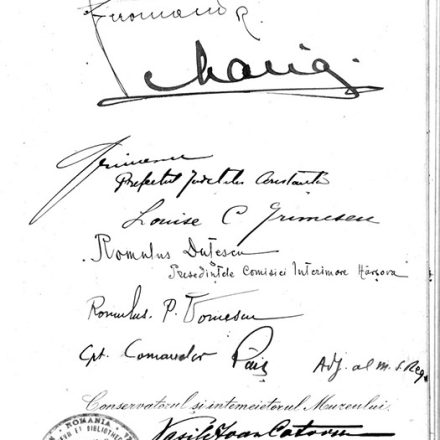 Fernand R
Maria
Grimescu
Prefectul Judetului Constanta
Louise C Grimescu
Romulus Dutescu
Presedintele Comisiei Interimare Hârşova
Romulus. P. Tomescu
Cpt. Comandor Păiş Adj. al m. s. Reg.
Conservatorul şi întemeietorul Muzeului
Vasile Ioan Cotovu
ROMANIA